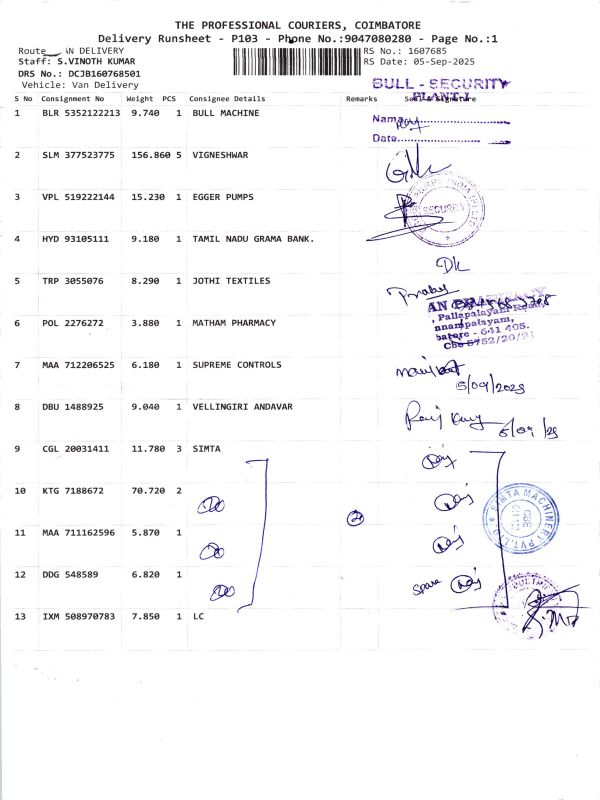 THE PROFESSIONAL COURIERS, COIMBATORE
Delivery Runsheet - P103 - Phone No.:9047080280 - Page No.:1
Route AN DELIVERY
RS No.: 1607685
Staff: S.VINOTH KUMAR
RS Date: 05-Sep-2025
DRS No.: DCJB160768501
Vehicle: Van Delivery
BULL - SECURITY
PLANT-I
S No Consignment No Weight PCS Consignee Details Remarks Seal & Signature
1 BLR 5352122213 9.740 1 BULL MACHINE
Name
Date
2 SLM 377523775 156.860 5 VIGNESHWAR
3 VPL 519222144 15.230 1 EGGER PUMPS
SECURITY
4 HYD 93105111 9.180 1 TAMIL NADU GRAMA BANK.
DK
5 TRP 3055076 8.290 1 JOTHI TEXTILES
6 POL 2276272 3.880 1 MATHAM PHARMACY
AN PHARMACY
Pallapalayam Road,
nnampalayam,
batore - 641 405.
20/21
7 MAA 712206525 6.180 1 SUPREME CONTROLS
5/09/2025
8 DBU 1488925 9.040 1 VELLINGIRI ANDAVAR
5/09/25
9 CGL 20031411 11.780 3 SIMTA
10 KTG 7188672 70.720 2
SIMTA MACHINERY PVT. LTD
CBE
11 MAA 711162596 5.870 1
12 DDG 548589 6.820 1
Spare
13 IXM 508970783 7.850 1 LC